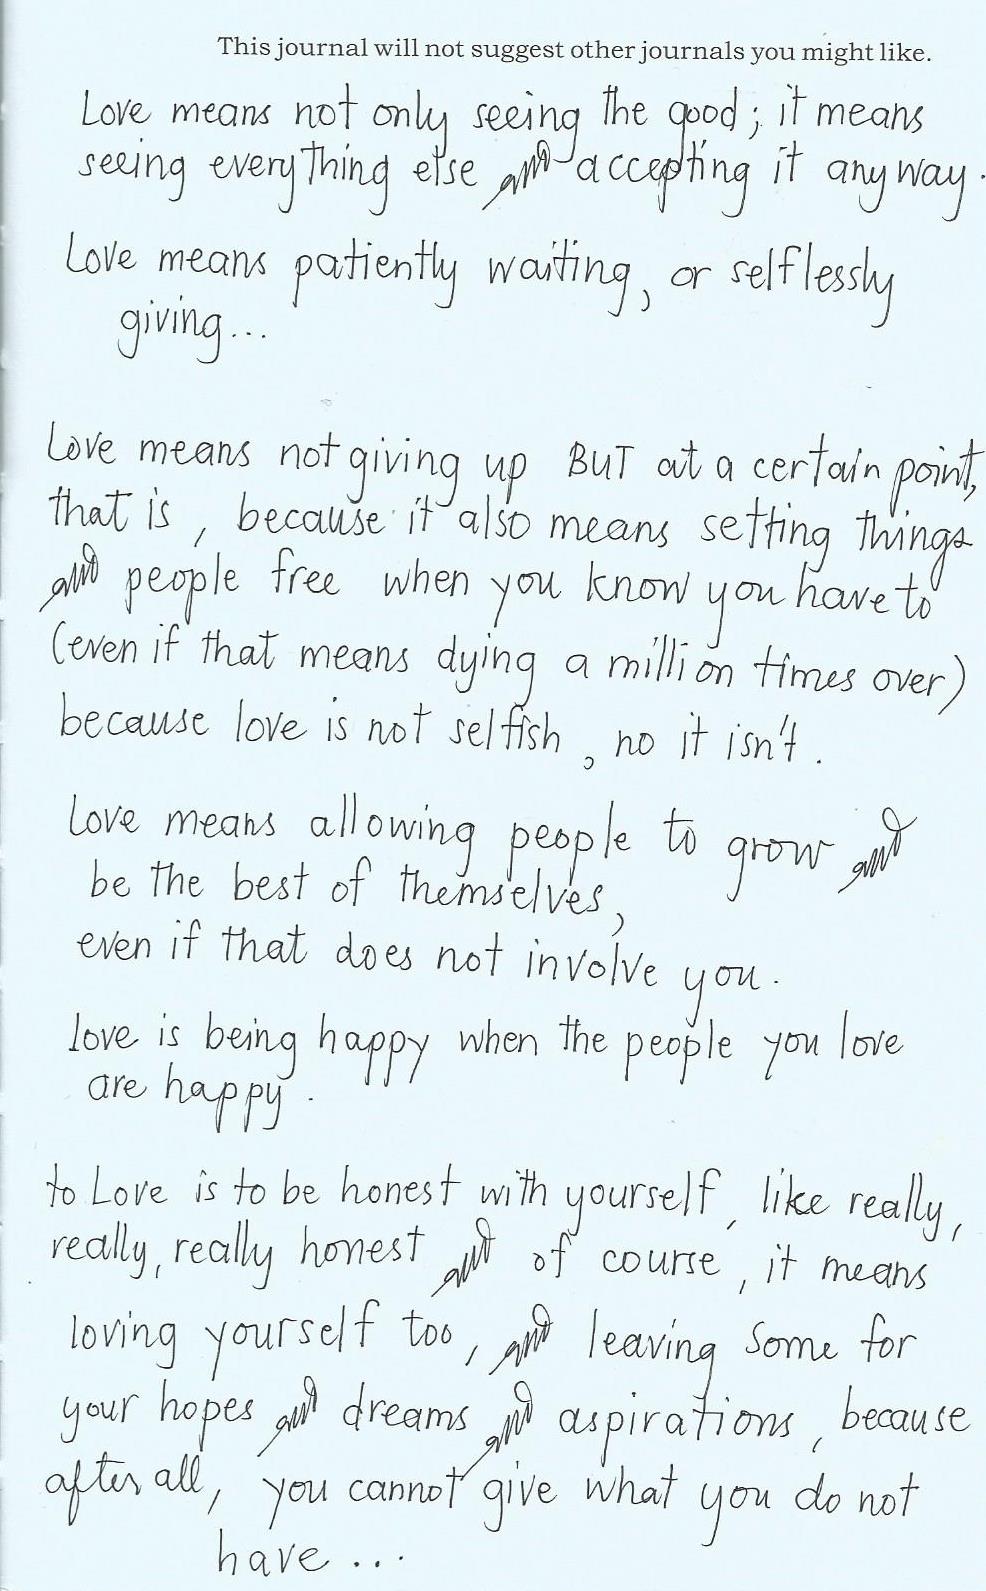 This journal will not suggest other journals you might like.
Love means not only seeing the good; it means
seeing everything else and accepting it anyway.
Love means patiently waiting, or selflessly
giving...
Love means not giving up BUT at a certain point,
that is, because it also means setting things
and people free when you know you have to
(even if that means dying a million times over)
because love is not selfish, no it isn't.
Love means allowing people to grow and
be the best of themselves,
even if that does not involve you.
love is being happy when the people you love
are happy.
to Love is to be honest with yourself, like really,
really, really honest and of course, it means
loving yourself too, and leaving some for
your hopes and dreams and aspirations, because
after all, you cannot give what you do not
have...